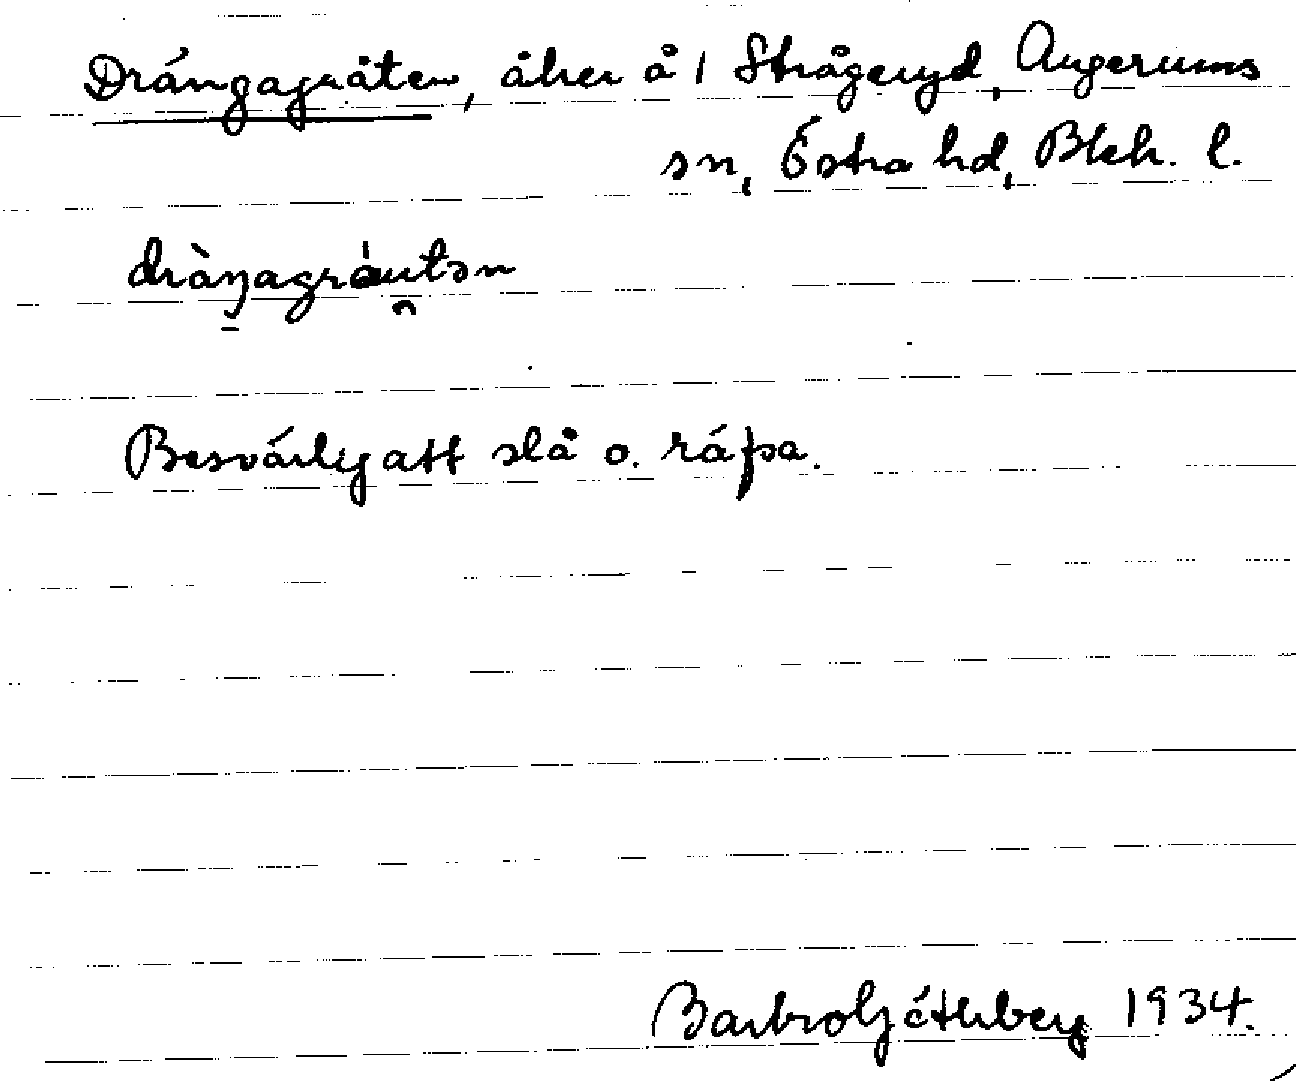 Drängagråten, åker å 1 Strågeryd, Augerums
sn, Östra hd, Blek. l.
dràŋagráutən
Besvärligt att slå o. räfsa.
Barbro Ljöthberg 1934.